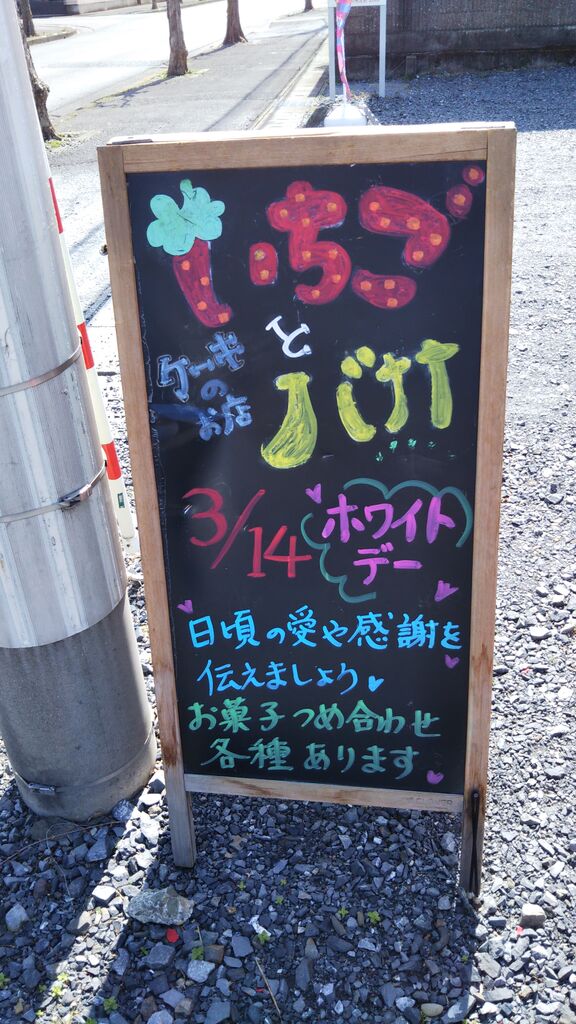 いちご
と
ケーキ
の
お店
バケ
3/14
ホワイト
デー
日頃の愛や感謝を
伝えましょう
お菓子つめ合わせ
各種あります